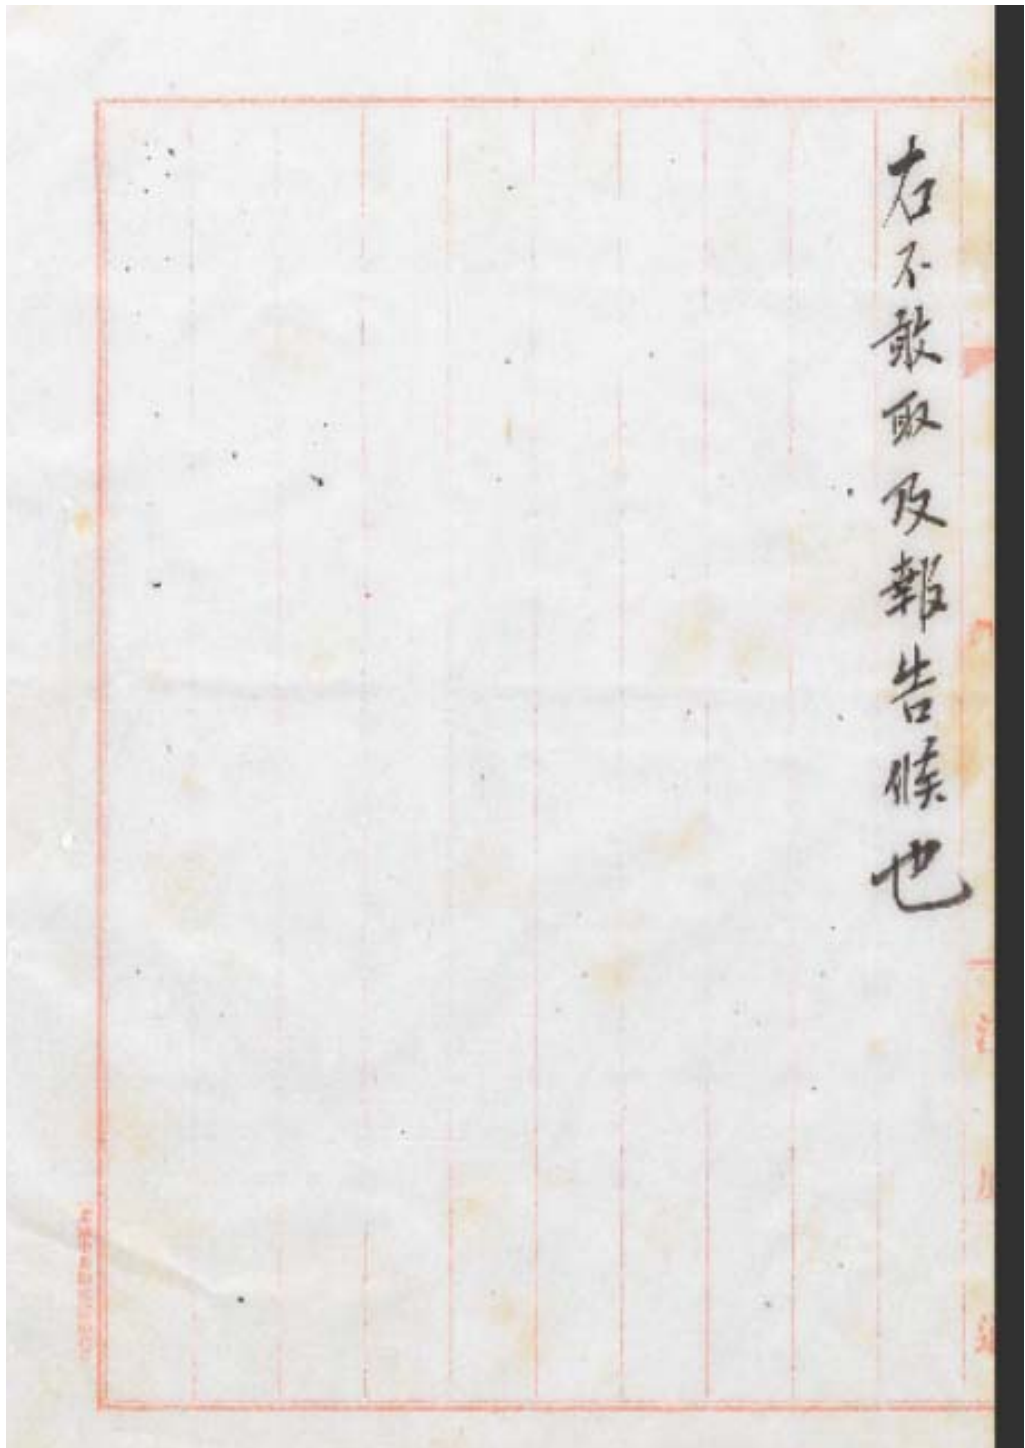 右不敢取及報告候也